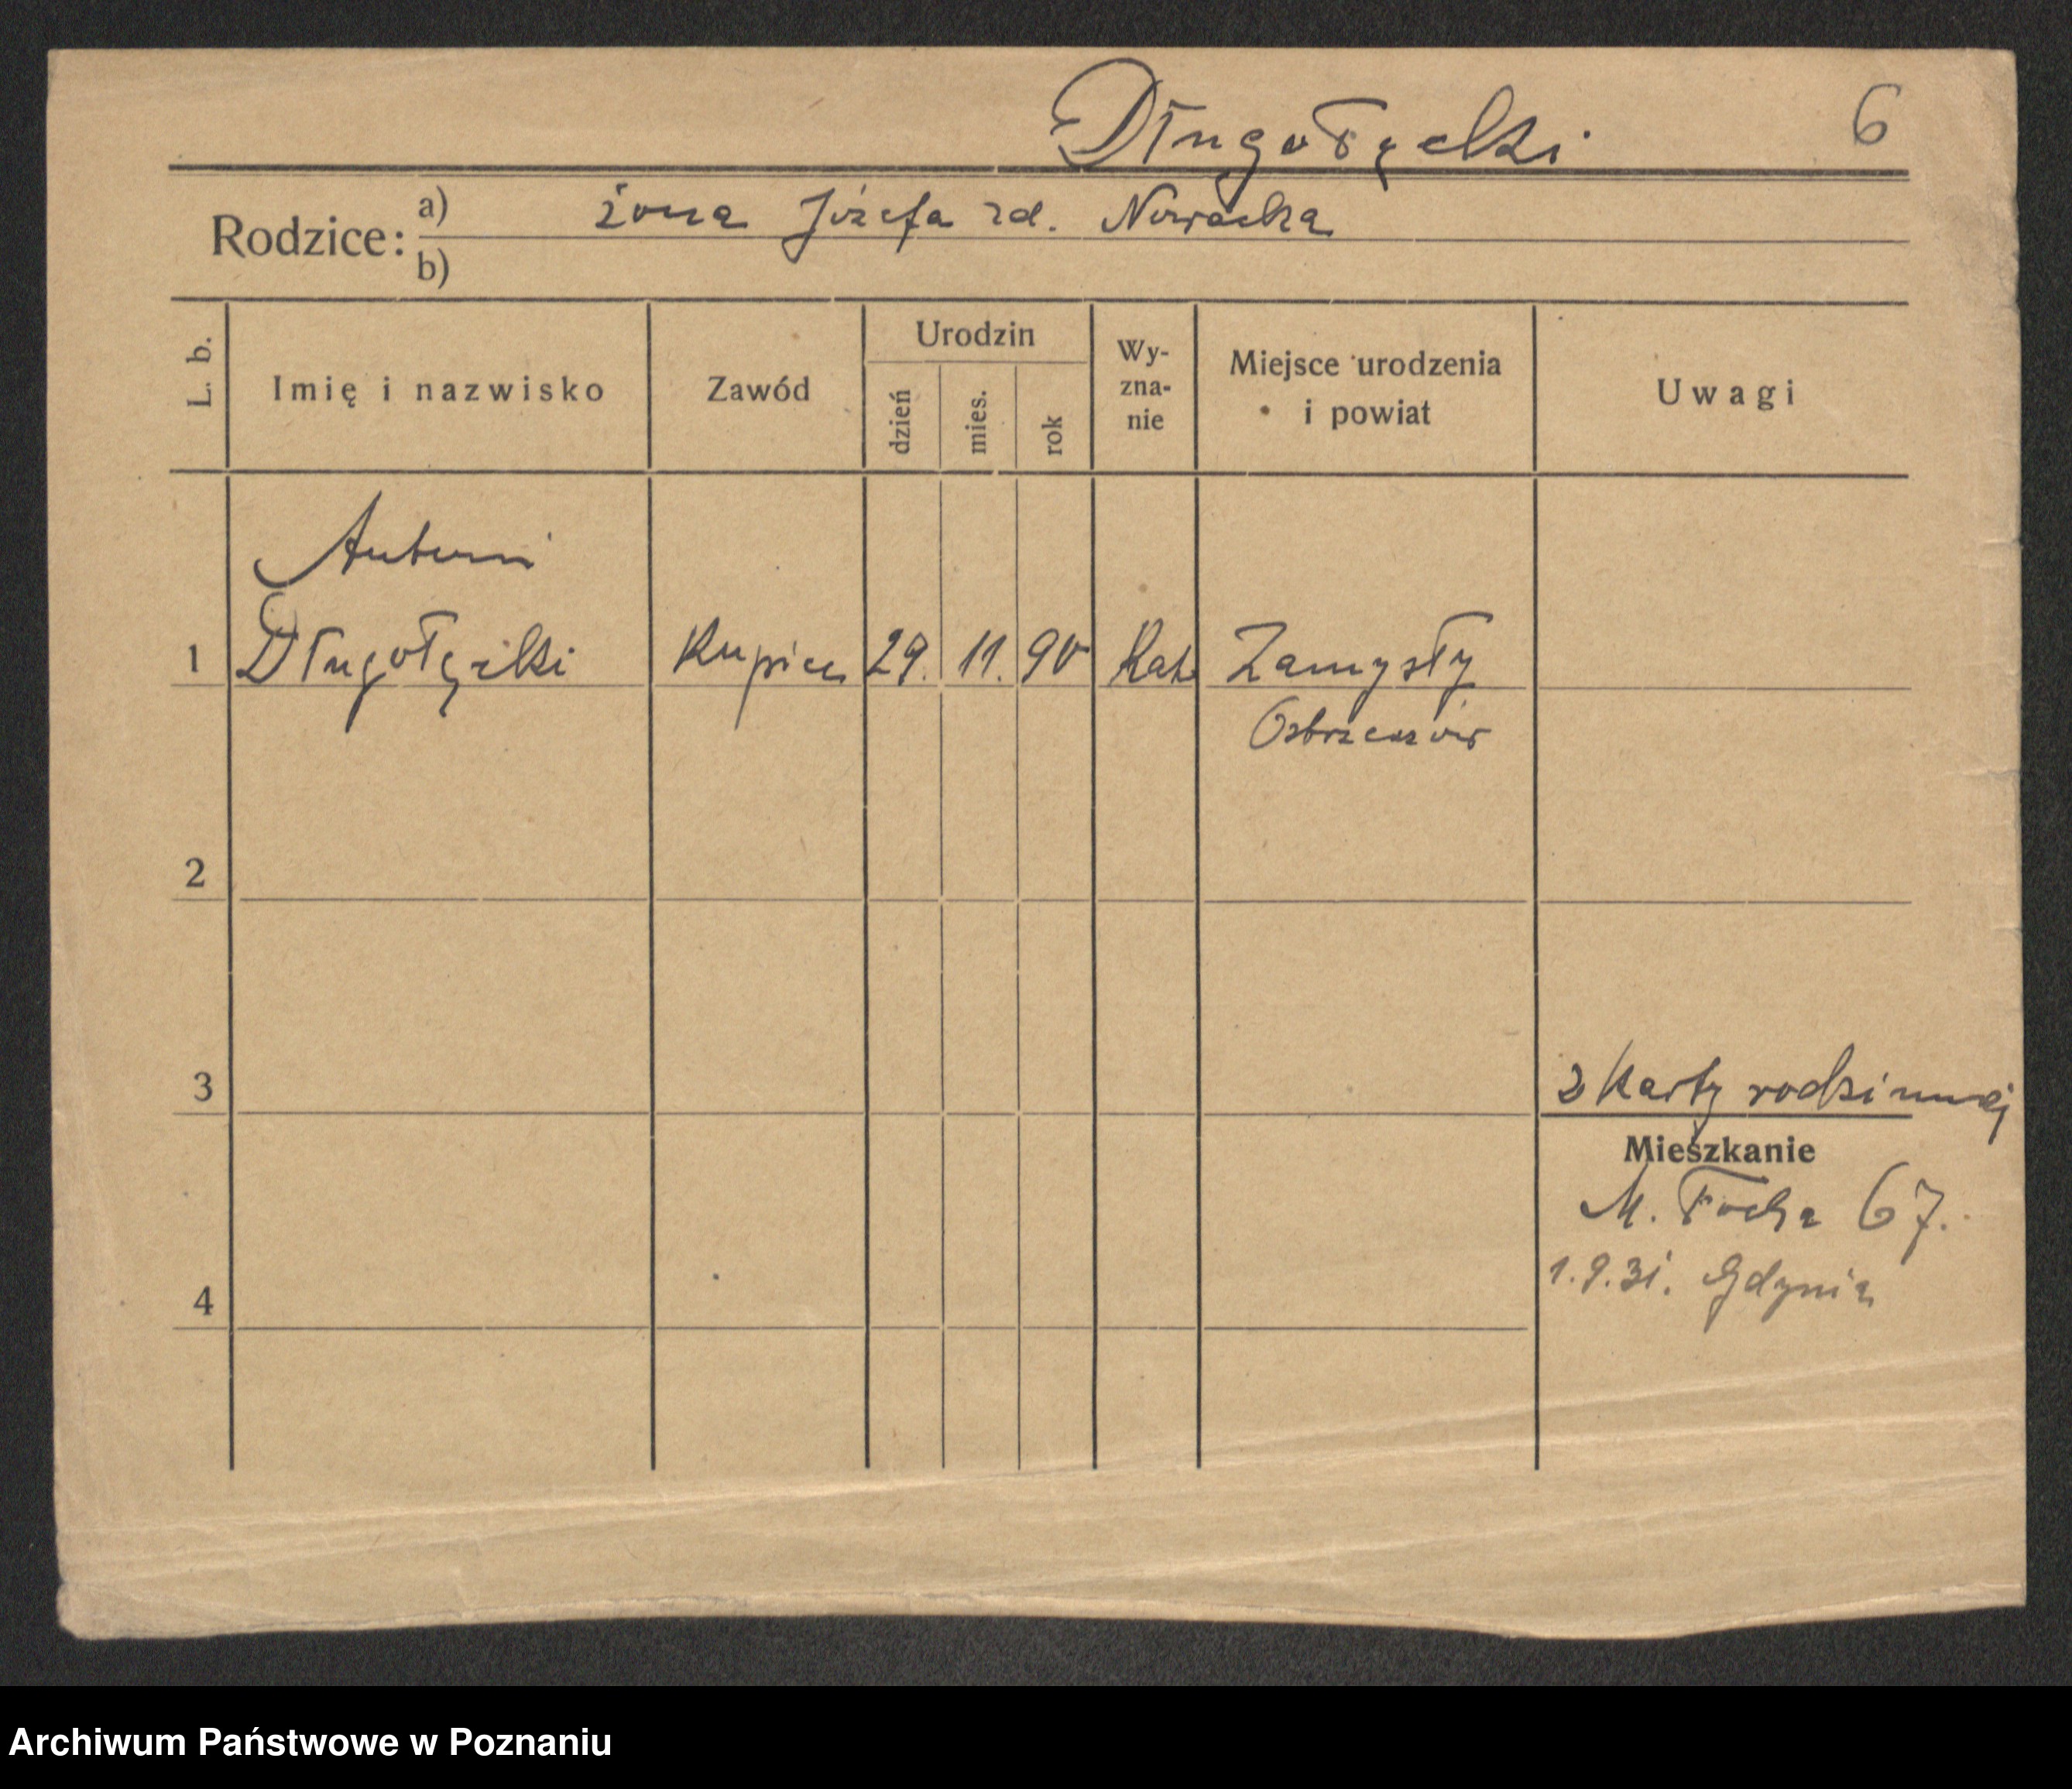 Długołęcki 6
Rodzice: a) żona Józefa zd. Nowacka
b)
L. b. Imię i nazwisko Zawód Urodzin dzień mies. rok Wy-zna-nie Miejsce urodzenia i powiat Uwagi
Antoni
1 Długołęcki Kupiec 29. 11. 90 Kat. Zamysły
Ostrzeszów
2
3 z Karty rodzinnej
Mieszkanie
M. Focha 67.
1.9.31. Gdynia
4
Archiwum Państwowe w Poznaniu